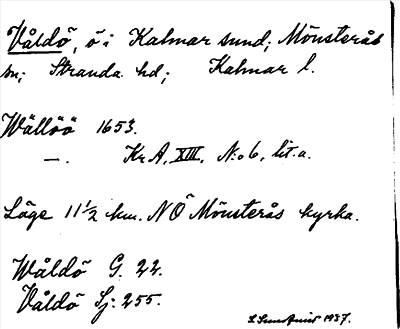 Våldö, ö i Kalmar sund; Mönsterås
sn; Stranda hd; Kalmar l.
Wållöö 1653.
—. Kr A, XIII, N:o 6, lit. a.
Läge 11 1/2 km. NÖ Mönsterås kyrka.
Wåldö G. 22.
Våldö Sj: 255.
1937.